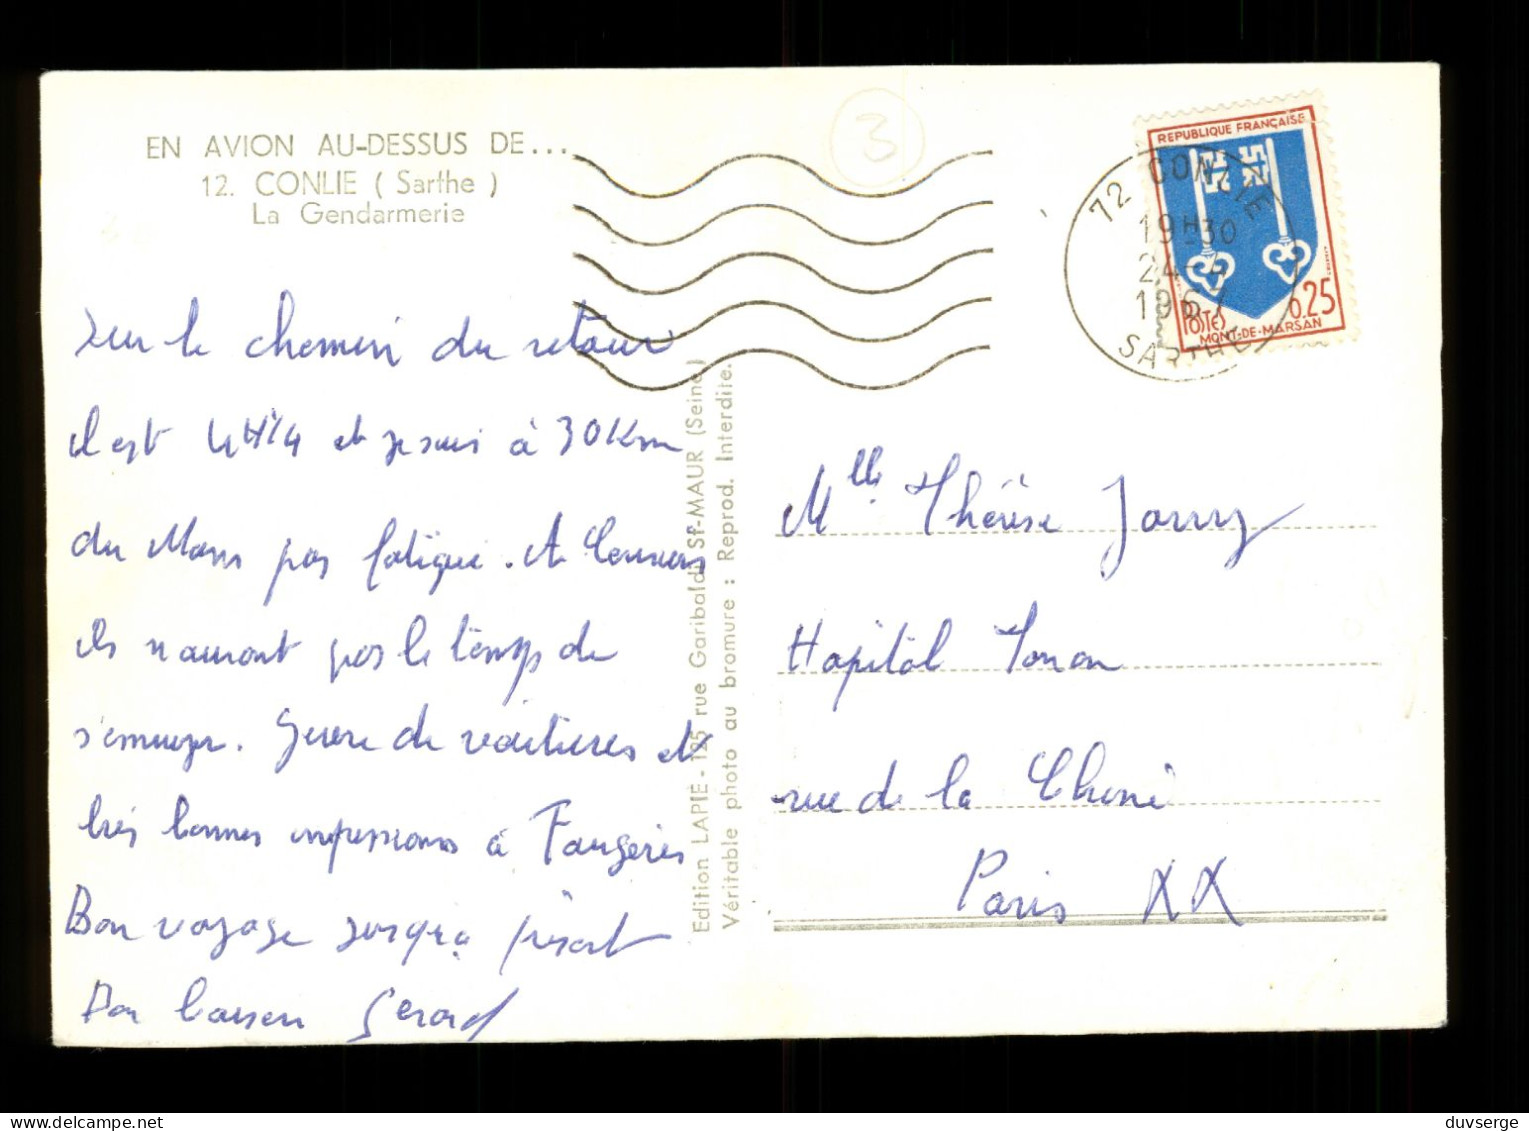 EN AVION AU-DESSUS DE...
12. CONLIE ( Sarthe )
La Gendarmerie
3
REPUBLIQUE FRANÇAISE
POSTES 0.25
MONT-DE-MARSAN
72 CONLIE
19H30
24-4
1967
SARTHE
Sur le chemin du retour
il est 4H1/4 et je suis à 30Km
du Mans pas fatigué. A
ils n'auront pas le temps de
s'ennuyer. Guère de voitures et
très bonnes impressions à Fougères
Bon voyage jusqu'à présent
Bon baiser Gérard
Edition LAPIE - 125 rue Garibaldi St-MAUR (Seine)
Véritable photo au bromure : Reprod. Interdite.
Mlle Thérèse Jarry
Hopitâl Tenon
rue de la Chine
Paris XX
duvserge